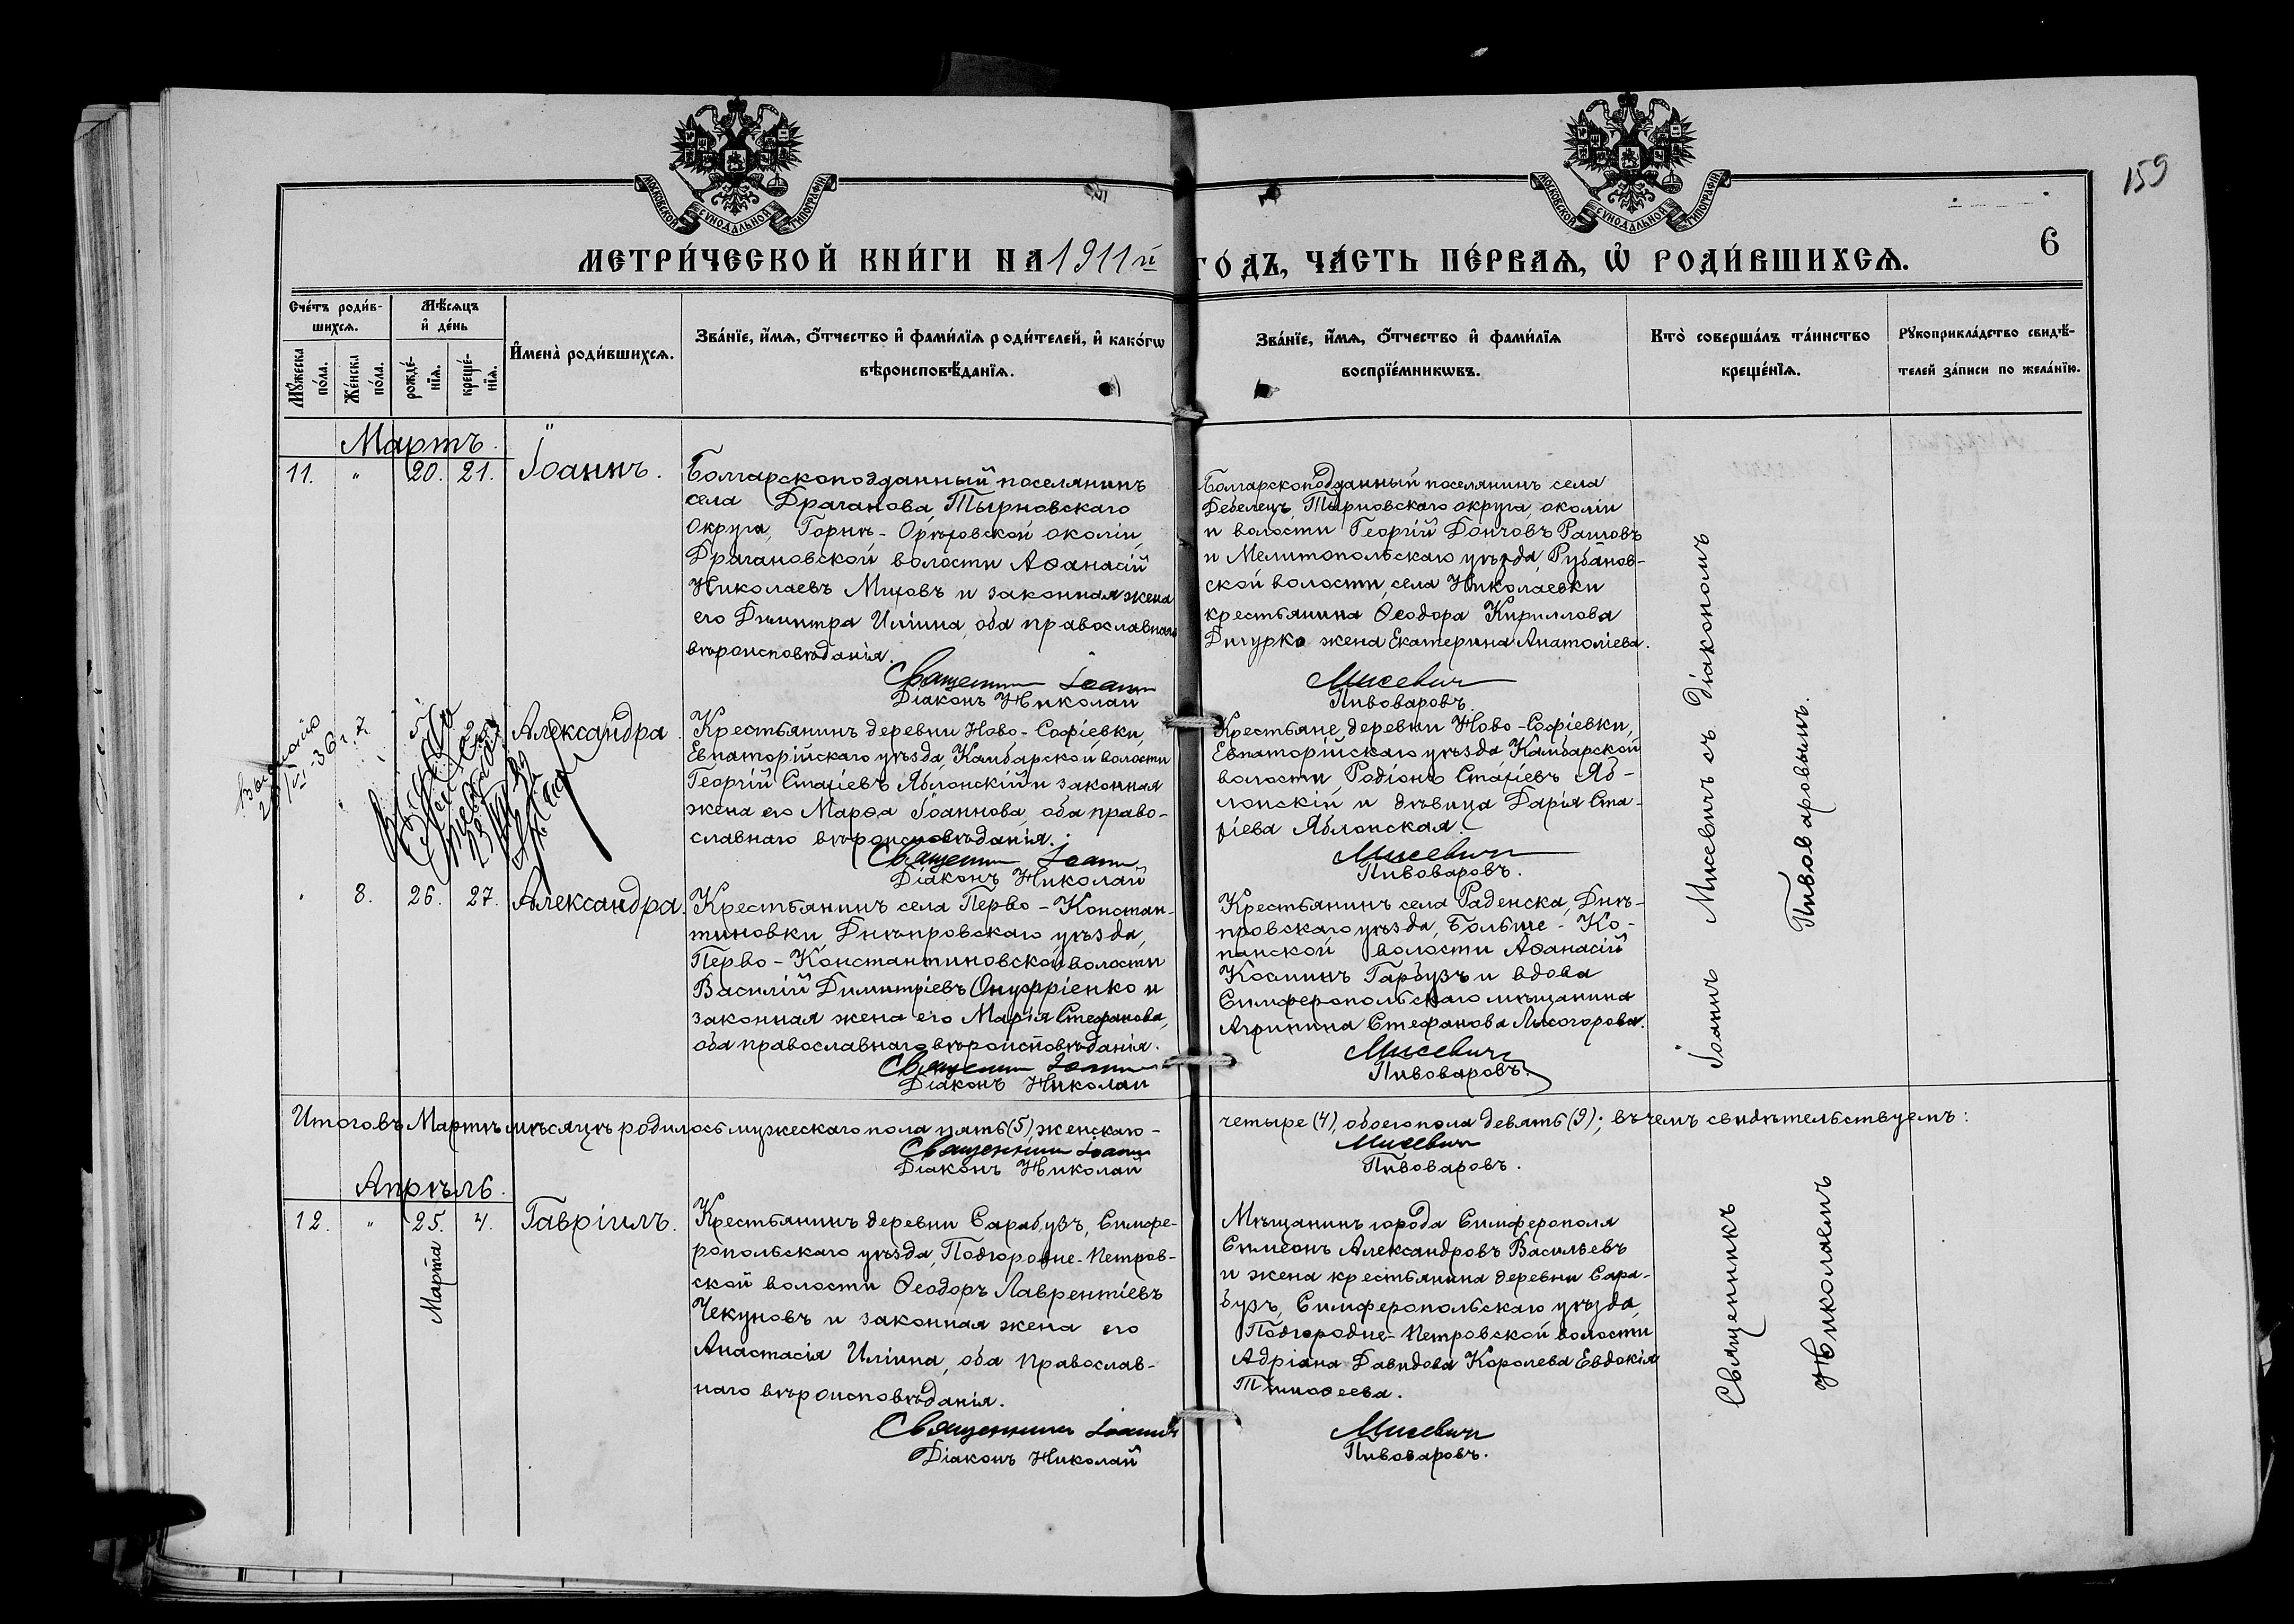 159
МОСКОВСКОЙ СѴНОДАЛЬНОЙ ТИПОГРАФІИ
МОСКОВСКОЙ СѴНОДАЛЬНОЙ ТИПОГРАФІИ
6
МЕТРИ́ЧЕСКОЙ КНИ́ГИ НА 1911 й ГО́ДЪ, ЧА́СТЬ ПЕ́РВАѦ, Ѡ҆ РОДИ́ВШИХСѦ.
Сче́тъ роди́в-
шихсѧ.
Мѣ́сѧцъ
и҆ де́нь
Мꙋ́жеска по́ла.
Же́нска по́ла.
рожде́-
нїѧ.
креще́-
нїѧ.
И҆мена̀ роди́вшихсѧ.
Зва́нїе, и҆́мѧ, ѻ҆́тчество и҆ фами́лїѧ роди́телей, и҆ како́гѡ
вѣроисповѣ́данїѧ.
Зва́нїе, и҆́мѧ, ѻ҆́тчество и҆ фами́лїѧ
воспрїе́мникѡвъ.
Кто̀ соверша́лъ та́инство
креще́нїѧ.
Рꙋкоприкла́дство свидѣ́-
телей за́писи по жела́нїю.
Мартъ.
11. " 20. 21. Іоаннъ.
Болгарскоподданный поселянинъ
села Драганова, Тырновскаго
округа, Горнъ-Орѣховской околіи,
Драгановской волости Аѳанасій
Николаевъ Мицовъ и законная жена
его Димитра Иліина, оба православнаго
вѣроисповѣданія.
Священник Іоанн
Діаконъ Николай
Болгарскоподданный поселянинъ села
Дебелецъ, Тырновскаго округа, околіи
и волости Георгій Дончовъ Рашовъ
и Мелитопольскаго уѣзда, Рубанов-
ской волости, села Николаевки
крестьянина Ѳеодора Кириллова
Дигурко жена Екатерина Анатоліева.
Мисевич
Пивоваровъ.
Александра.
Крестьянинъ деревни Ново-Софіевки,
Евпаторійскаго уѣзда, Камбарской волости
Георгій Стахіевъ Яблонскій и законная
жена его Марѳа Іоаннова, оба право-
славнаго вѣроисповѣданія.
Священник Іоанн
Діаконъ Николай
Крестьяне деревни Ново-Софіевки,
Евпаторійскаго уѣзда, Камбарской
волости, Родіонъ Стахіевъ Яб-
лонскій и дѣвица Дарія Ста-
хіева Яблонская.
Мисевич
Пивоваровъ.
Іоаннъ Мисевичъ съ Діакономъ
Пивоваровымъ.
" 8. 26. 27. Александра.
Крестьянинъ села Перво-Констан-
тиновки, Днѣпровскаго уѣзда,
Перво-Константиновской волости
Василій Димитріевъ Онуфріенко и
законная жена его Марія Стефанова,
оба православнаго вѣроисповѣданія.
Священник Іоанн
Діаконъ Николай
Крестьянинъ села Раденска, Днѣ-
провскаго уѣзда, Больше-Ко-
панской волости Аѳанасій
Косминъ Гарбузъ и вдова
Симферопольскаго мѣщанина
Агрипина Стефанова Лысогорова.
Мисевич
Пивоваровъ.
Итого въ Мартѣ мѣсяцѣ родилось мужескаго пола пять (5), женскаго -
четыре (4), обоего пола девять (9); въ чемъ свидѣтельствуемъ:
Священник Іоанн
Діаконъ Николай
Мисевич
Пивоваровъ.
Апрѣль.
12. " 25. 4. Гавріилъ.
Марта
Крестьянинъ деревни Сарабузъ, Симфе-
ропольскаго уѣзда, Подгородне-Петров-
ской волости Ѳеодоръ Лаврентіевъ
Чекуновъ и законная жена его
Анастасія Иліина, оба православ-
наго вѣроисповѣданія.
Священник Іоанн
Діаконъ Николай
Мѣщанинъ города Симферополя
Симеонъ Александровъ Васильевъ
и жена крестьянина деревни Сара-
бузъ, Симферопольскаго уѣзда,
Подгородне-Петровской волости
Адріана Давидова Королева Евдокія
Тимоѳеева.
Мисевич
Пивоваровъ.
Священникъ
Николаемъ